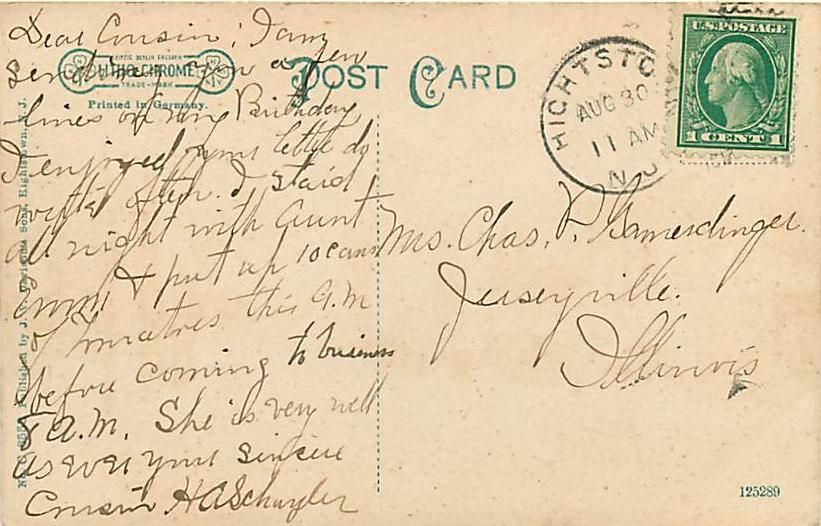 Dear Cousin; I am
sending you a few
lines on my Birthday
I enjoyed your letter do
write often. I staid
all night with Aunt
Emmi & put up 10 cans
of tmatres this A.M
before coming to business
8 A.M. She is very well
as ever your sincere
Cousin H A Schuyler
LEIPZIG BERLIN DRESDEN
LITHO-CHROME
TRADE-MARK
Printed in Germany.
POST CARD
HIGHTSTO
AUG 30
11 AM
N J
U.S. POSTAGE
1 CENT 1
Mrs. Chas. P.
Jerseyville.
Illinois
Published by J. Sons, Hightstown, N. J.
125289